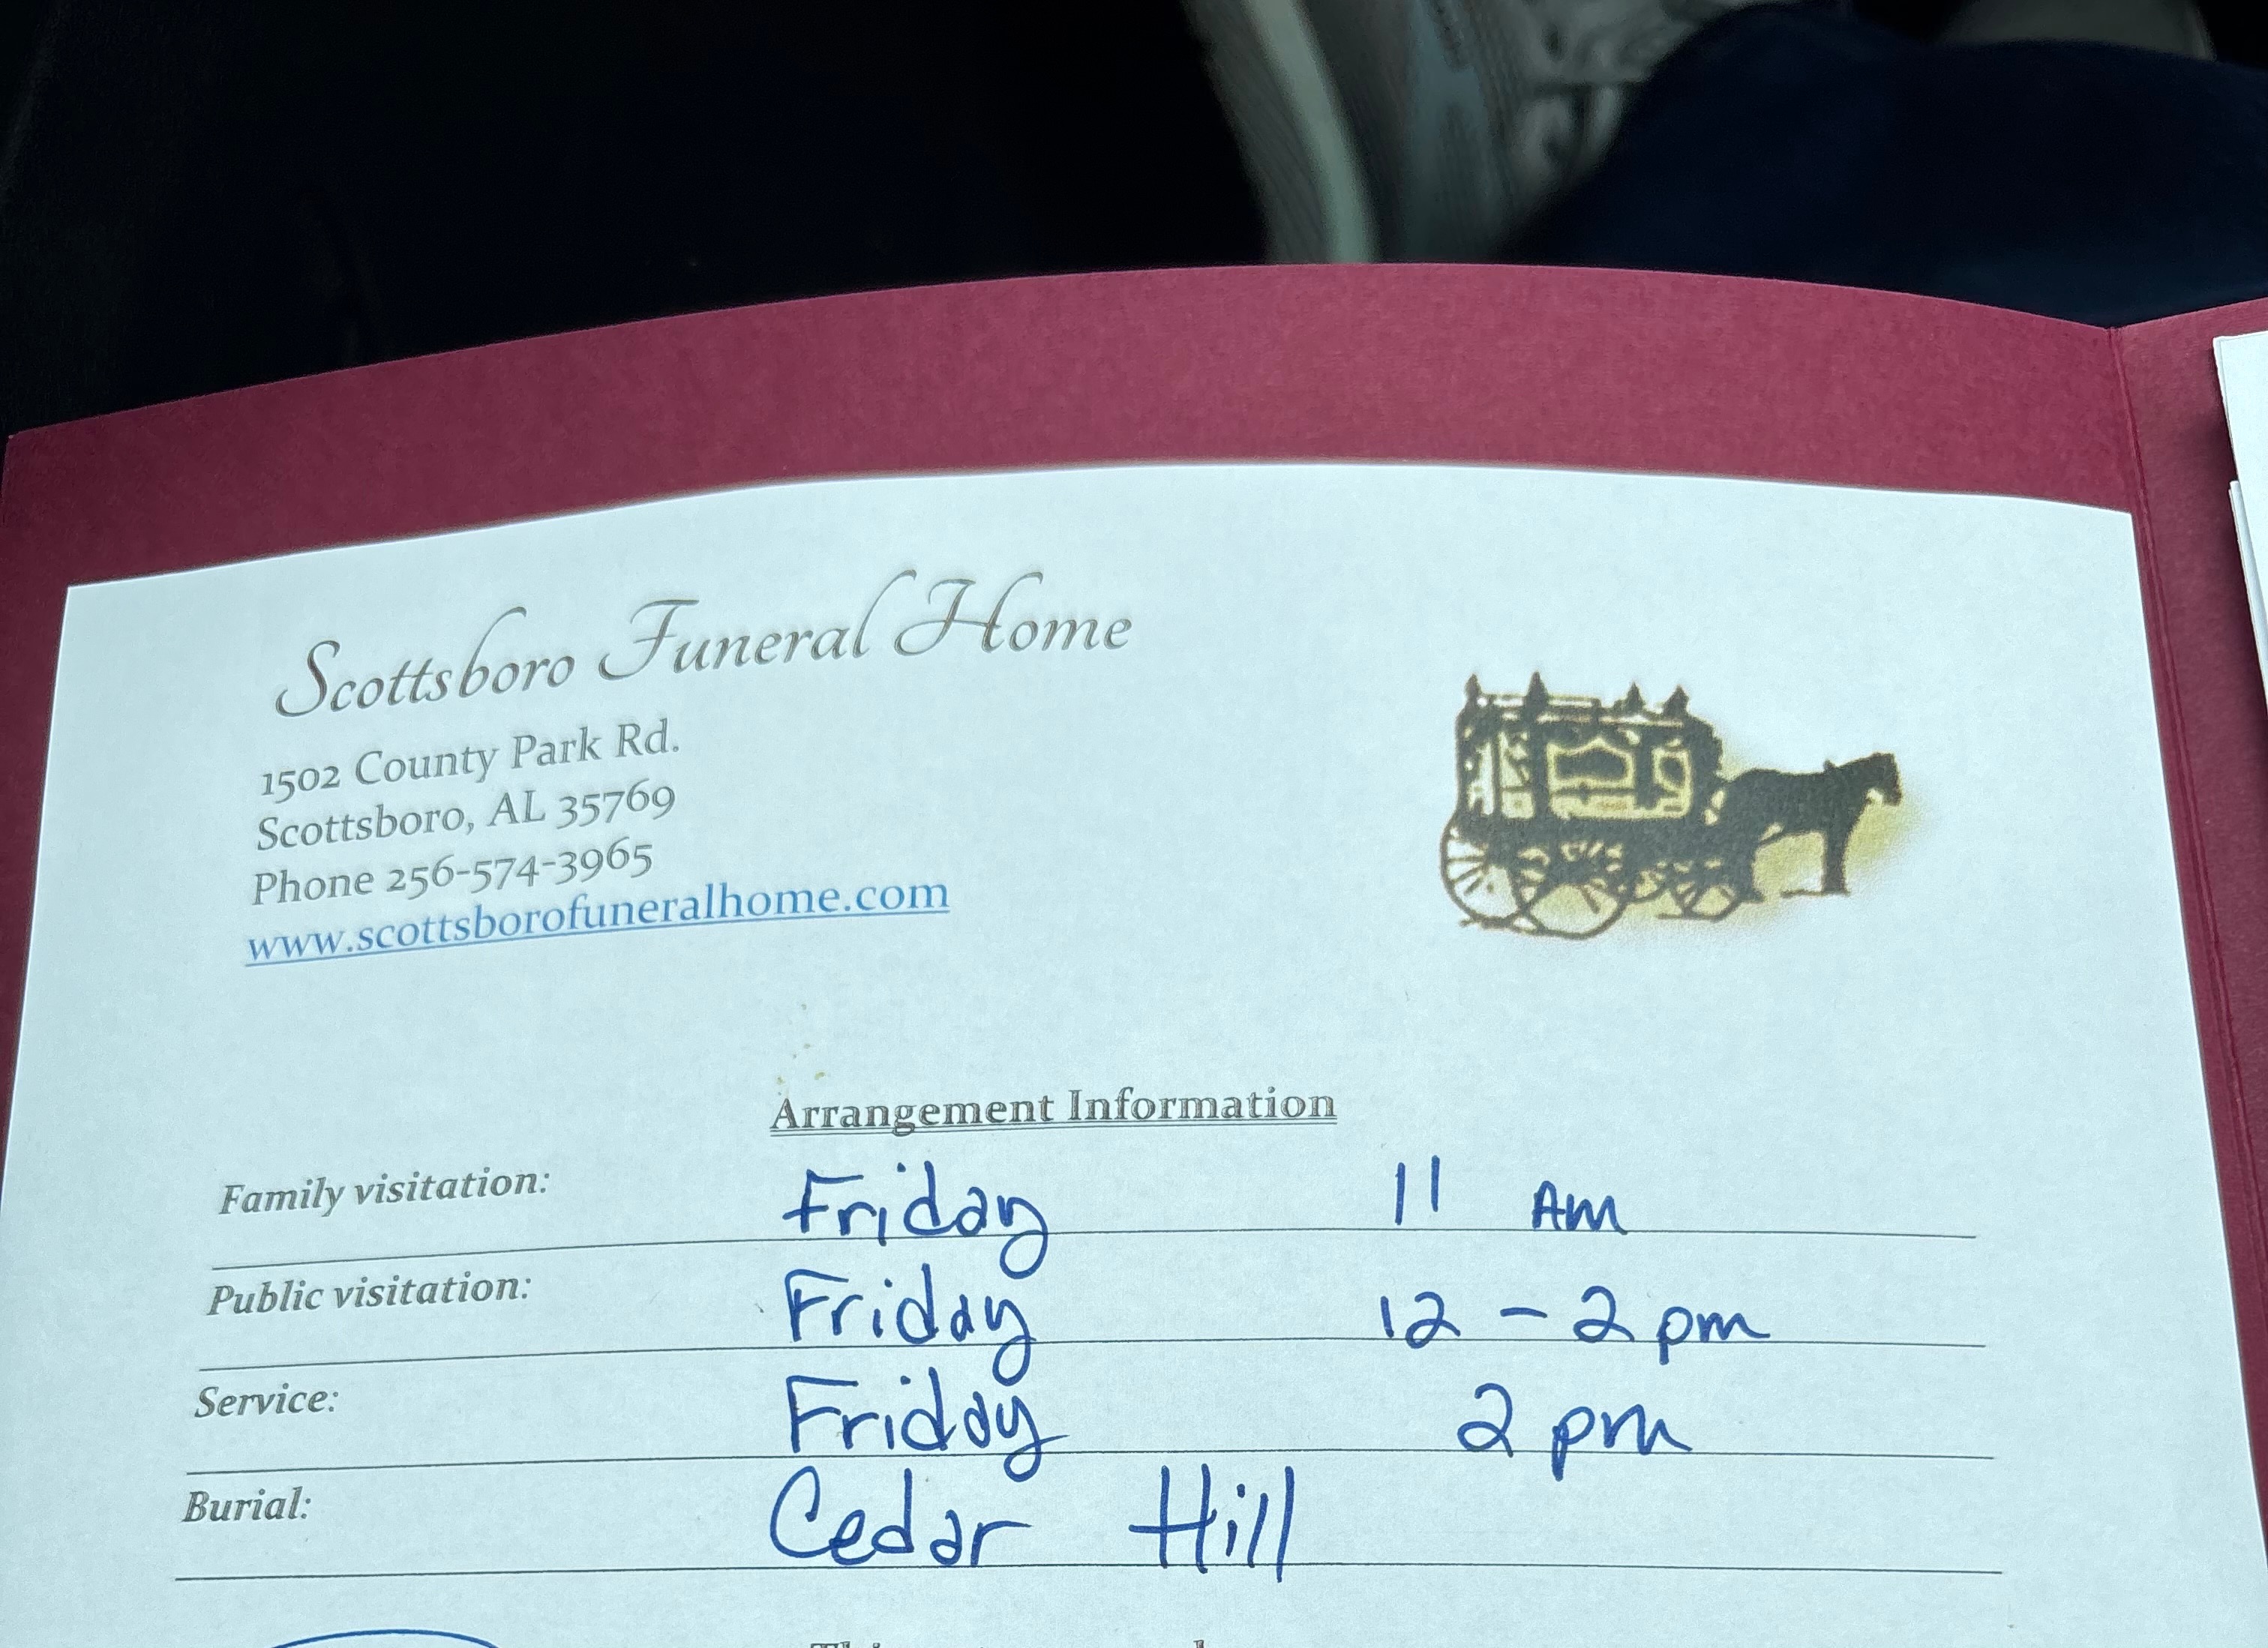 Scottsboro Funeral Home
1502 County Park Rd.
Scottsboro, AL 35769
Phone 256-574-3965
www.scottsborofuneralhome.com
Arrangement Information
Family visitation: Friday 11 AM
Public visitation: Friday 12 - 2 pm
Service: Friday 2 pm
Burial: Cedar Hill